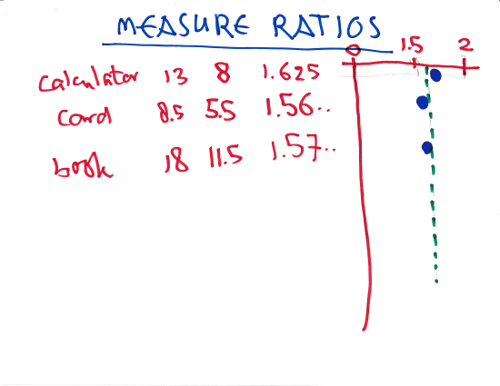 MEASURE RATIOS
0 1.5 2
calculator 13 8 1.625
card 8.5 5.5 1.56..
book 18 11.5 1.57..